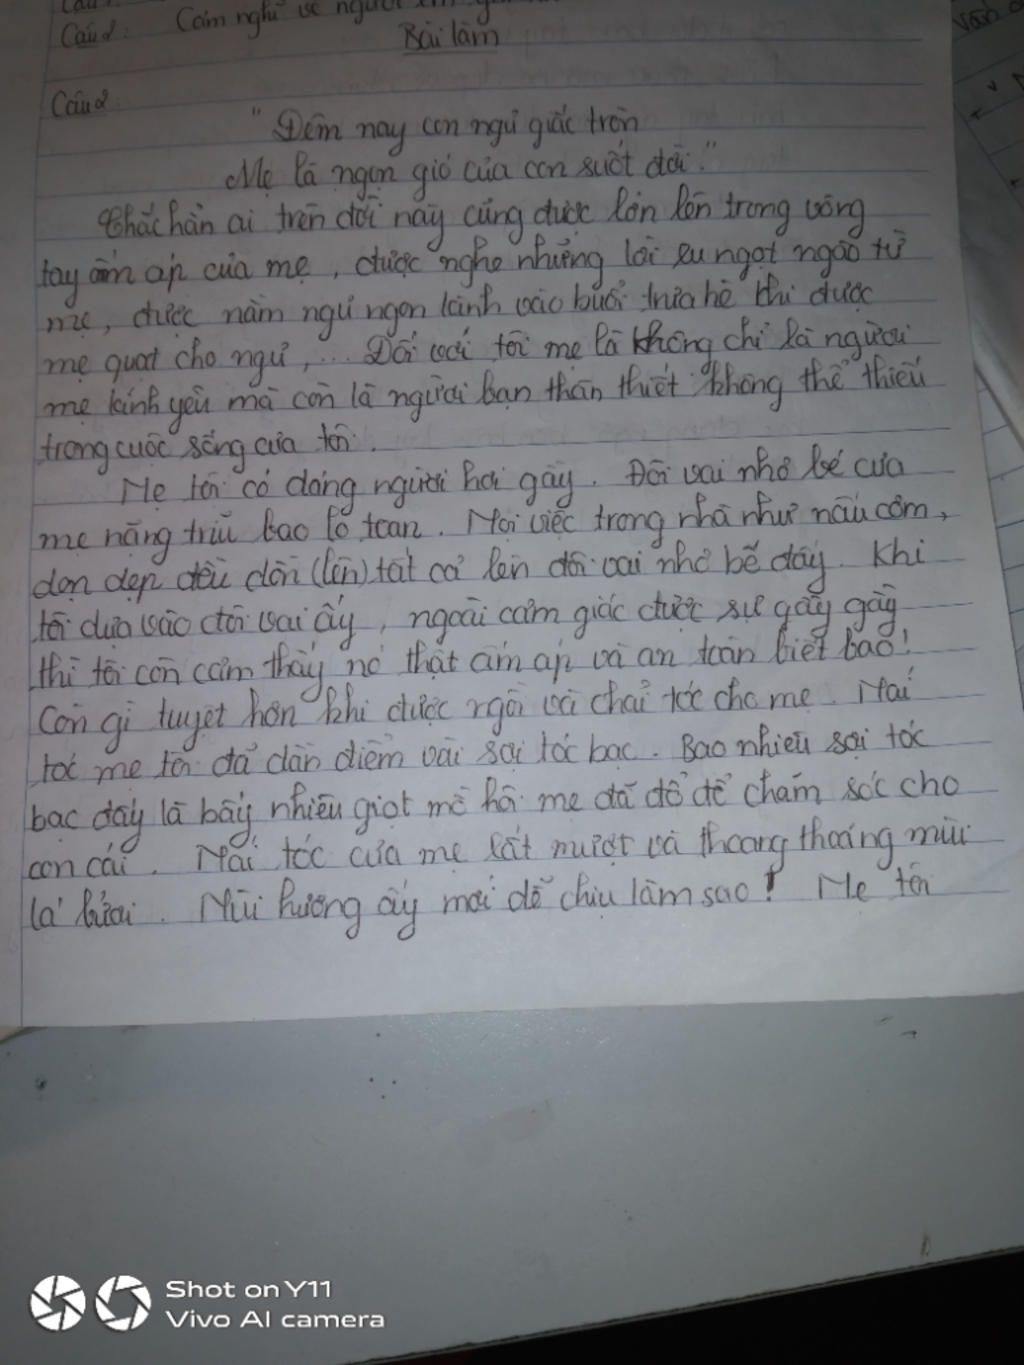 Câu2: Cảm nghĩ về người em
Bài làm
Văn
Câu2:
"Đêm nay con ngủ giấc tròn
Mẹ là ngọn gió của con suốt đời."
Chắc hẳn ai trên đời này cũng được lớn lên trong vòng
tay ấm áp của mẹ, được nghe những lời ru ngọt ngào từ
mẹ, được nằm ngủ ngon lành vào buổi trưa hè khi được
mẹ quạt cho ngủ, ... Đối với tôi mẹ là không chỉ là người
mẹ kính yêu mà còn là người bạn thân thiết không thể thiếu
trong cuộc sống của tôi.
Mẹ tôi có dáng người hơi gầy. Đôi vai nhỏ bé của
mẹ nặng trĩu bao lo toan. Mọi việc trong nhà như nấu cơm,
dọn dẹp đều dồn (lên) tất cả lên đôi vai nhỏ bé đấy. Khi
tôi dựa vào đôi vai ấy, ngoài cảm giác được sự gầy gầy
thì tôi còn cảm thấy nó thật ấm áp và an toàn biết bao!
Còn gì tuyệt hơn khi được ngồi và chải tóc cho mẹ. Mái
tóc mẹ tôi đã dần điểm vài sợi tóc bạc. Bao nhiêu sợi tóc
bạc đấy là bấy nhiêu giọt mồ hôi mẹ đã đổ để chăm sóc cho
con cái. Mái tóc của mẹ rất mượt và thoang thoảng mùi
lá bưởi. Mùi hương ấy mới dễ chịu làm sao! Mẹ tôi
Shot on Y11
Vivo AI camera